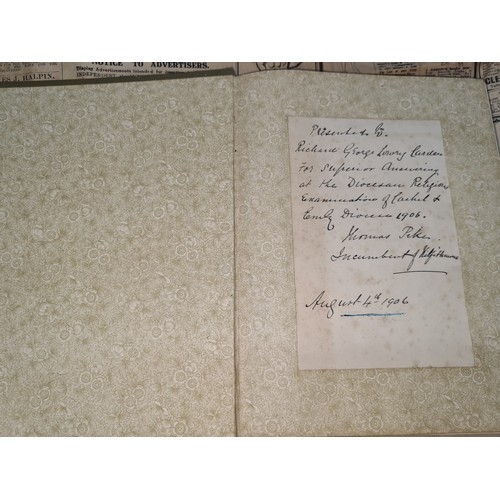 NOTICE TO ADVERTISERS.
ES J. HALPIN,
Presented to
Richard George Lowry Carden
For Superior Answering
at the Diocesan Religious
Examination of Cashel &
Emly Diocese 1906.
Thomas
Incumbent of
August 4th 1906